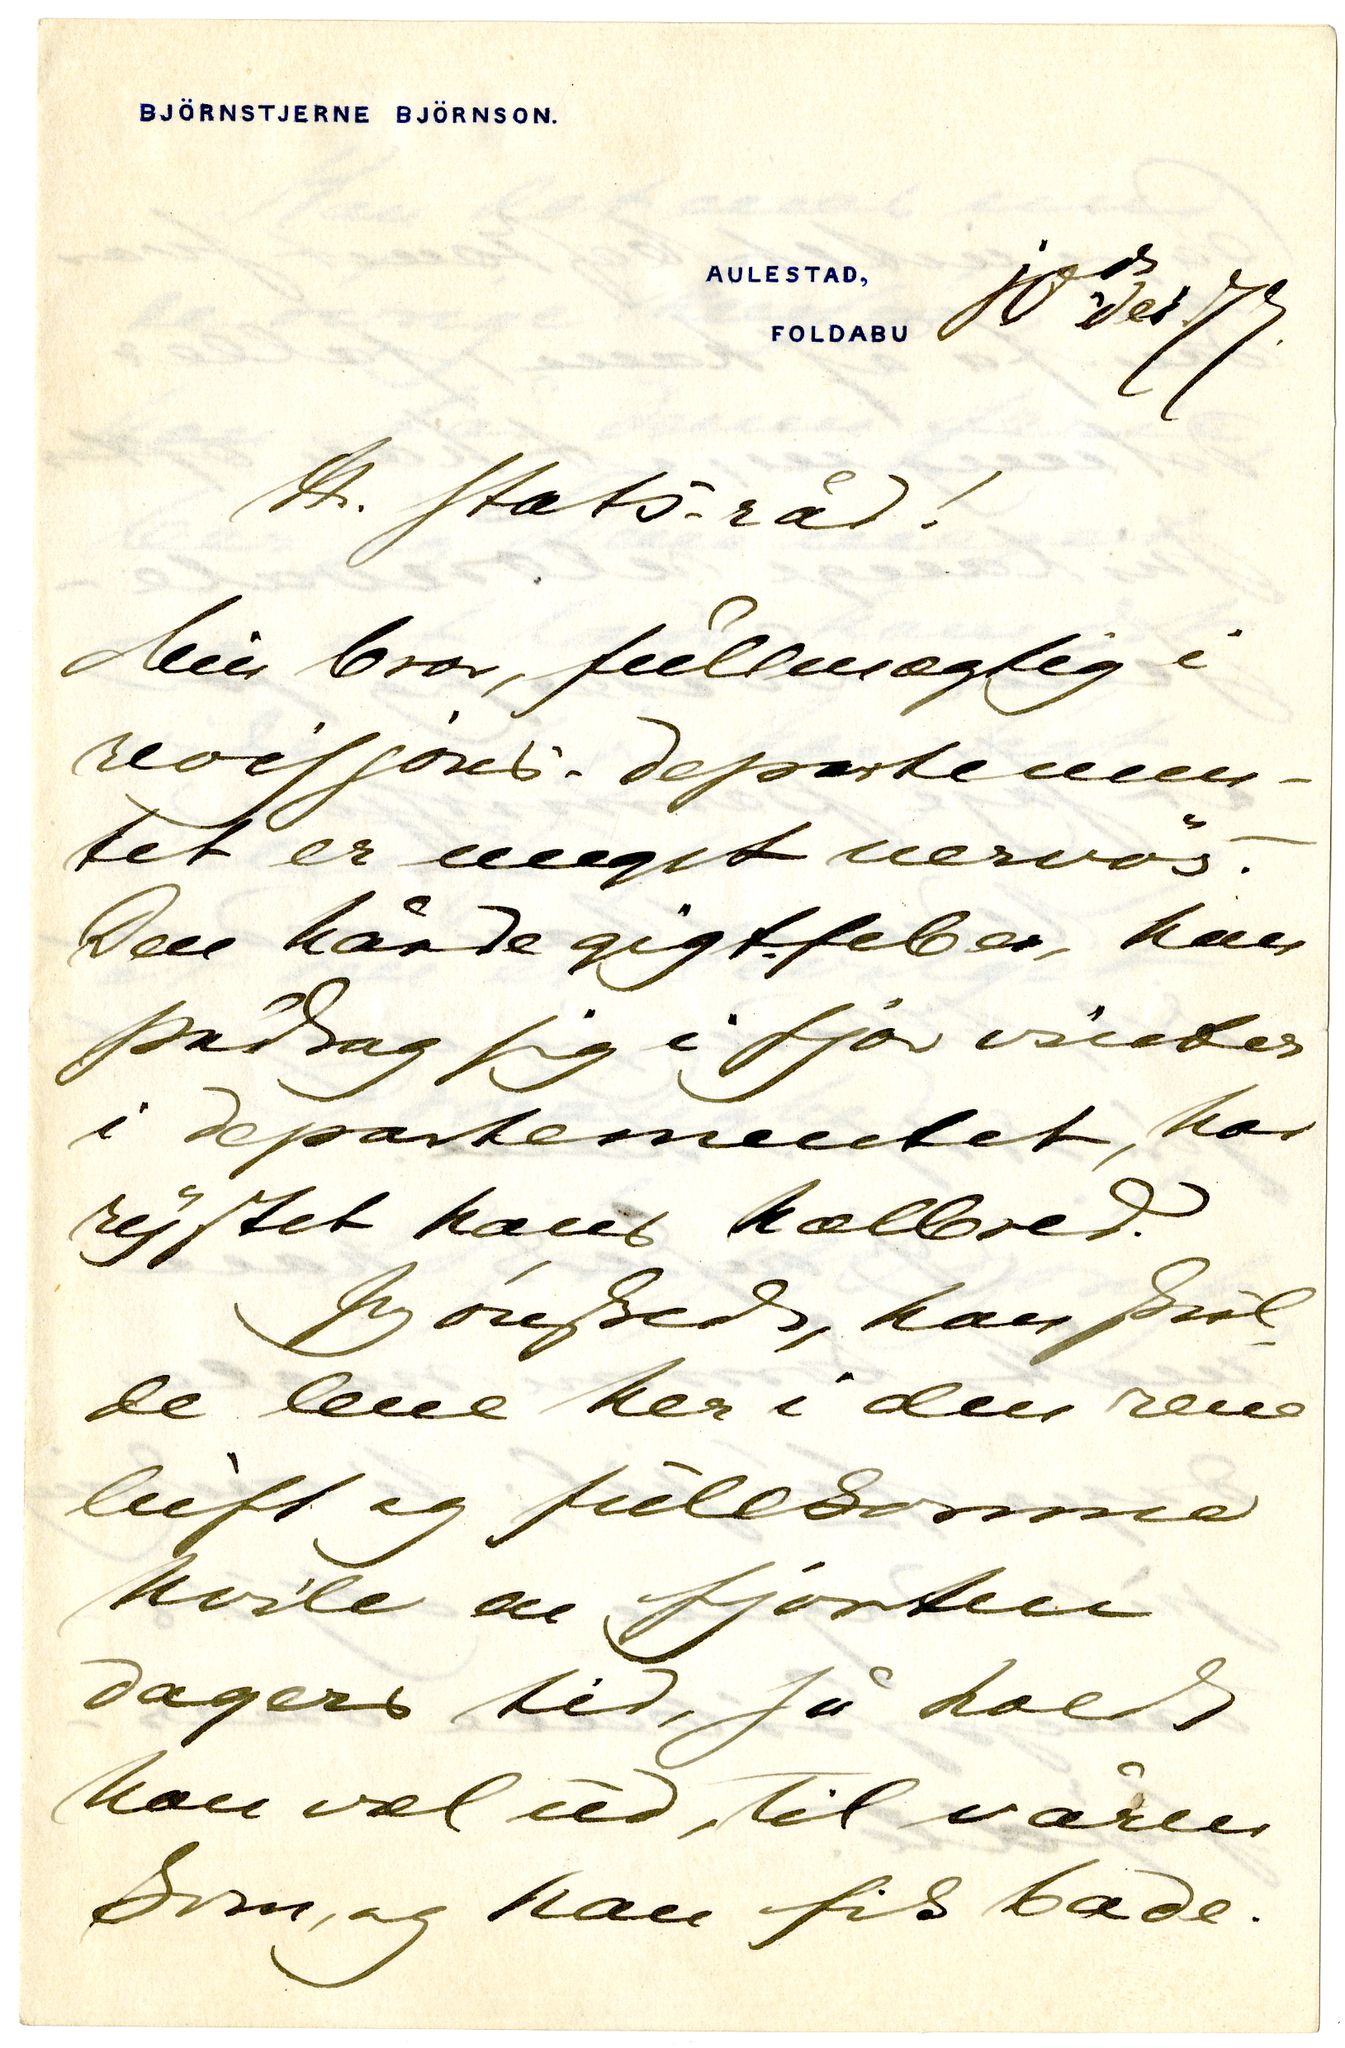 BJÖRNSTJERNE BJÖRNSON.
AULESTAD,
FOLDABU
10 des 77.
Hr. stats-råd!
Min bror, fullmægtig i
revisjons-departemen-
tet er meget nervös.
Den hårde gigt-feber, han
pådrog sig i fjor vinter
i departementet, har
rystet hans hælbred.
Jeg önskede, han skul-
de leve her i den rene
luft og fullkomne
hvile en fjorten
dagers tid, så holdt
han væl ud, til våren
kom, og han fik bade.